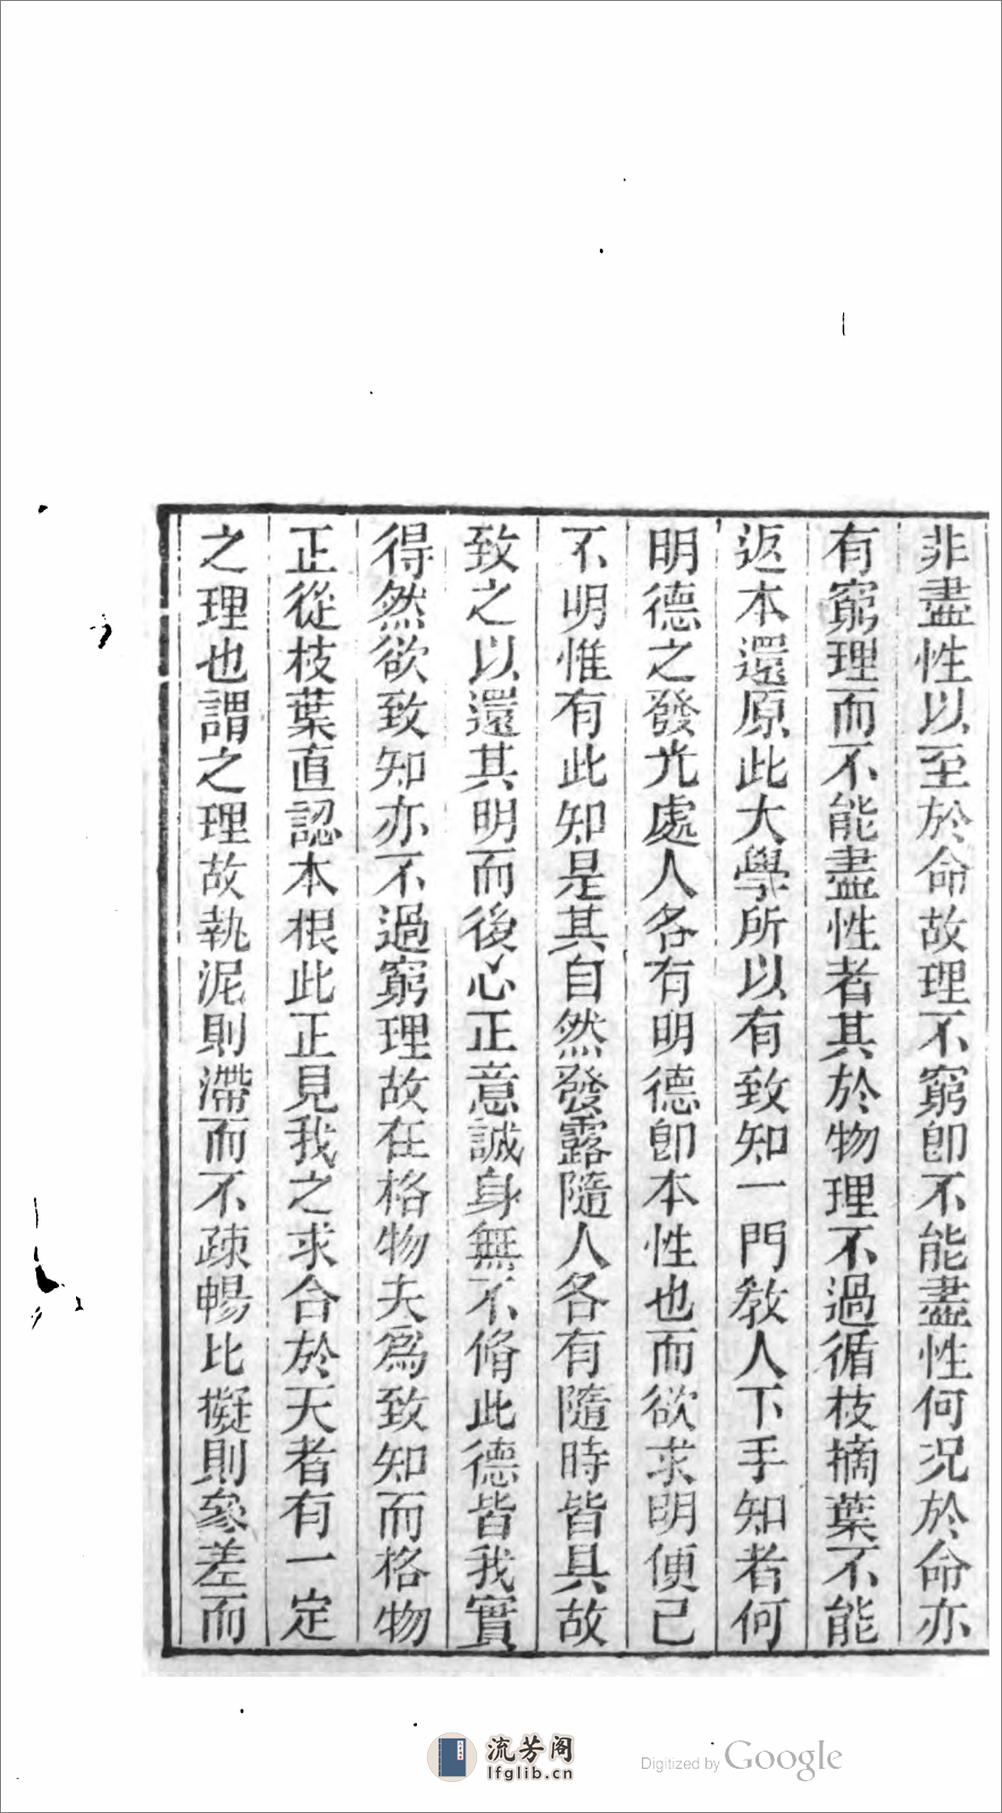 非盡性以至於命故理不窮卽不能盡性何况於命亦
有窮理而不能盡性者其於物理不過循枝摘葉不能
返本還原此大學所以有致知一門敎人下手知者何
明德之發光處人各有明德卽本性也而欲求明便已
不明惟有此知是其自然發露隨人各有隨時皆具故
致之以還其明而後心正意誠身無不脩此德皆我實
得然欲致知亦不過窮理故在格物夫爲致知而格物
正從枝葉直認本根此正見我之求合於天者有一定
之理也謂之理故執泥則滯而不疎暢比擬則參差而
流芳阁
lfglib.cn
Digitized by Google